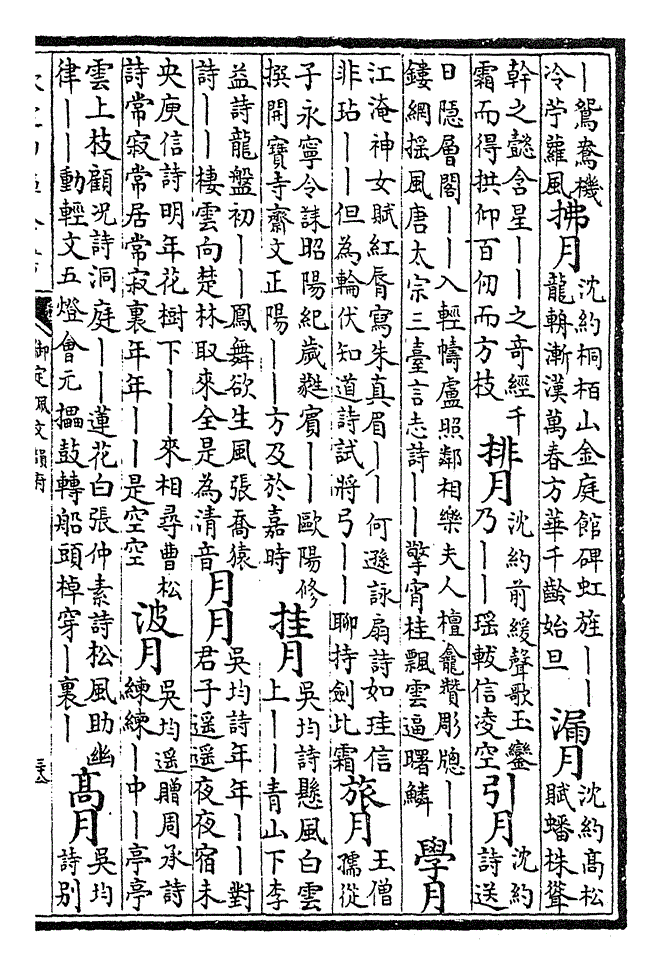 ｜鴛鴦機
冷苧蘿風
拂月
沈約桐栢山金庭館碑虹旌｜｜
龍輈漸漢萬春方華千齡始旦
漏月
沈約髙松
賦蟠株聳
幹之懿含星｜｜之竒經千
霜而得拱仰百仞而方枝
排月
沈約前緩聲歌玉鑾
乃｜｜瑶軷信凌空
引月
沈約
詩送
日隠層閣｜｜入輕幬盧照鄰相樂夫人檀龕贊彫牕｜｜
鏤網揺風唐太宗三臺言志詩｜｜擎宵桂飄雲逼曙鱗
學月
江淹神女賦紅唇寫朱真眉｜｜何遜詠扇詩如珪信
非玷｜｜但為輪伏知道詩試將弓｜｜聊持劍比霜
旅月
王僧
孺從
子永寧令誄昭陽紀歲蕤賓｜｜歐陽修
撰開寳寺齋文正陽｜｜方及於嘉時
挂月
吳均詩懸風白雲
上｜｜青山下李
益詩龍盤初｜｜鳳舞欲生風張喬猿
詩｜｜棲雲向楚林取來全是為清音
月月
吳均詩年年｜｜對
君子遥遥夜夜宿未
央庾信詩明年花樹下｜｜來相尋曹松
詩常寂常居常寂裏年年｜｜是空空
波月
吳均遥贈周承詩
練練｜中｜亭亭
雲上枝顧况詩洞庭｜｜蓮花白張仲素詩松風助幽
律｜｜動輕文五燈會元擂鼓轉船頭棹穿｜裏｜
髙月
吳均
詩别
御定佩文韻府